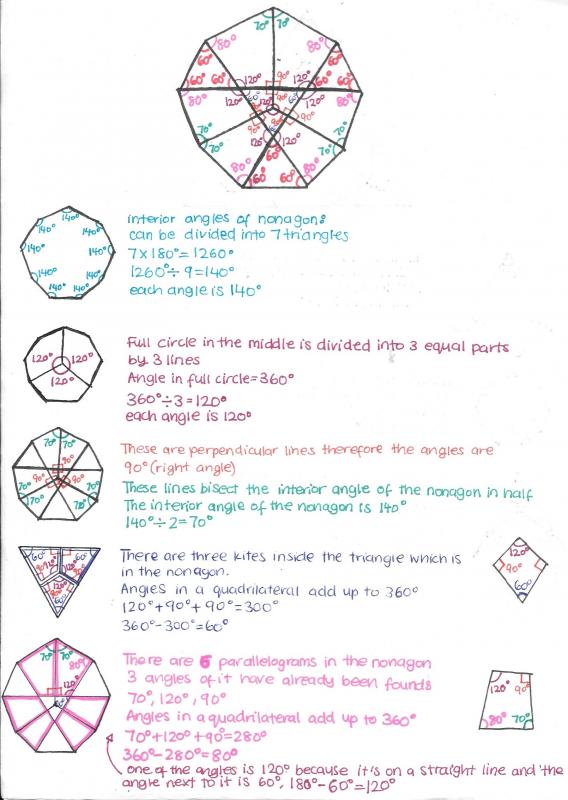 70° 70°
80° 80°
60° 60°
60° 60° 120° 90° 120° 60° 60°
80° 120° 60° 120° 90° 60° 120° 80°
90° 90° 90° 90°
70° 70°
70° 120° 60° 120° 70°
80° 60° 80°
60° 60°
140°
140° 140°
140° 140°
140° 140°
140° 140°
interior angles of nonagon:
can be divided into 7 triangles
7×180°=1260°
1260°÷9=140°
each angle is 140°
120° 120°
120°
Full circle in the middle is divided into 3 equal parts
by 3 lines
Angle in full circle=360°
360°÷3=120°
each angle is 120°
70° 70°
90°
90° 90°
70° 70°
70° 70°
These are perpendicular lines therefore the angles are
90° (right angle)
These lines bisect the interior angle of the nonagon in half
The interior angle of the nonagon is 140°
140°÷2=70°
60° 90° 90° 60°
90° 120° 120° 90°
120°
90° 90°
60°
There are three kites inside the triangle which is
in the nonagon.
Angles in a quadrilateral add up to 360°
120°+90°+90°=300°
360°-300°=60°
120°
90°
60°
70° 70°
80°
120°
60°
There are 6 parallelograms in the nonagon
3 angles of it have already been found:
70°, 120°, 90°
Angles in a quadrilateral add up to 360°
70°+120°+90°=280°
360°-280°=80°
one of the angles is 120° because it's on a straight line and the
angle next to it is 60°, 180°-60°=120°
120° 90°
80° 70°